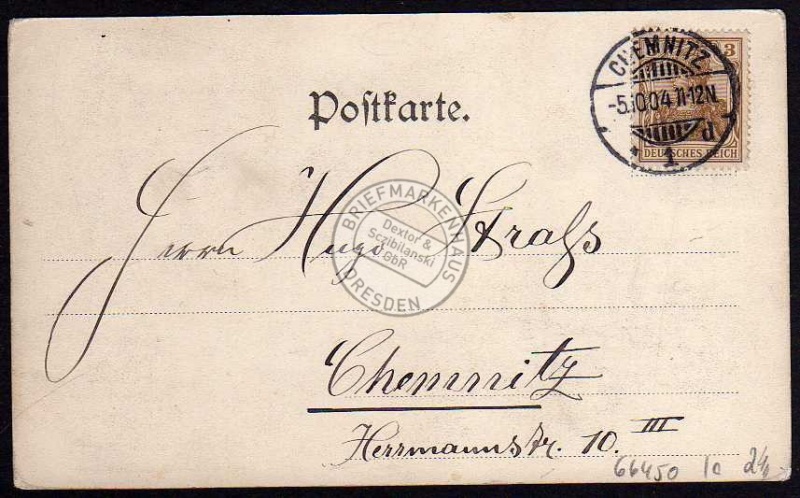 3
DEUTSCHES REICH
CHEMNITZ
-5.10.04.11-12N.
* 1 P
Postkarte.
Herrn Hugo
BRIEFMARKENHAUS
Dextor &
Sczibilanski
GbR
DRESDEN
Chemnitz
Herrmannstr. 10. III
66450 1a